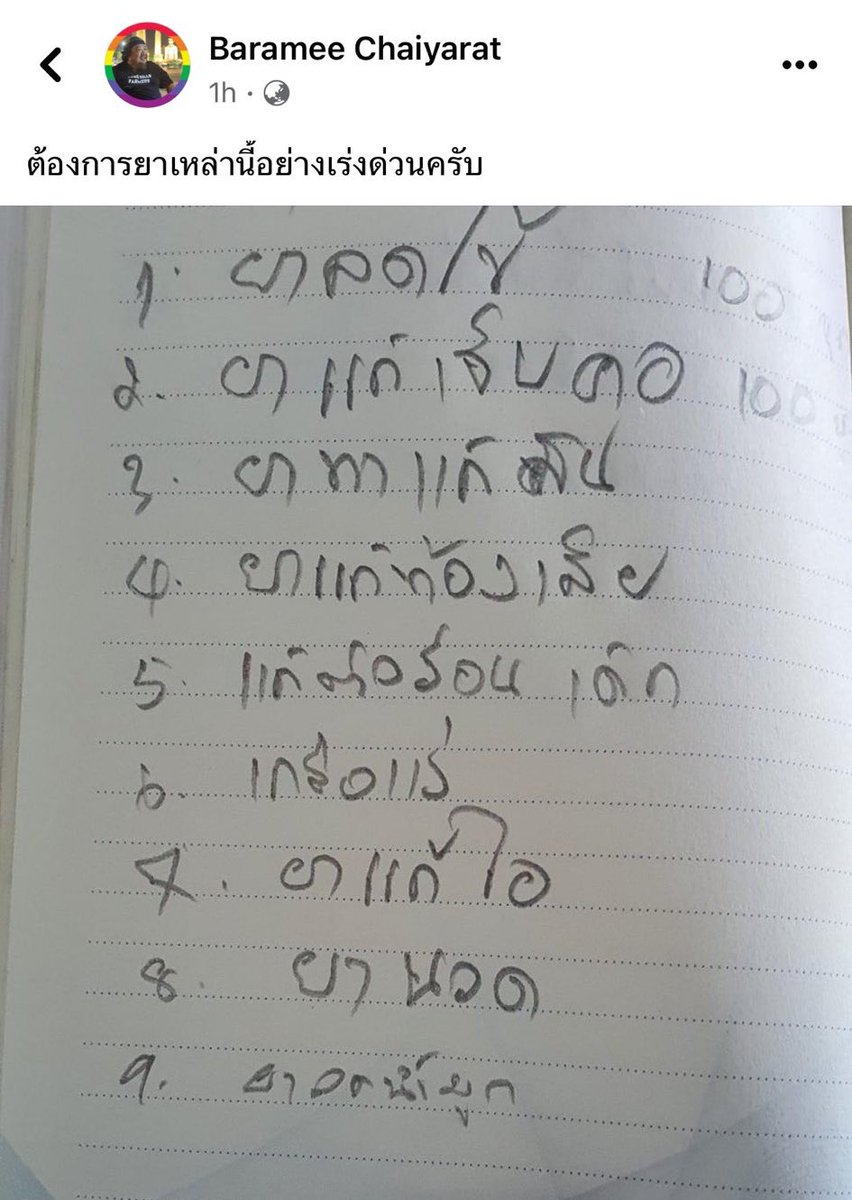 Baramee Chaiyarat
1h
ต้องการยาเหล่านี้อย่างเร่งด่วนครับ
1. ยาลดไข้ 100
2. ยาแก้เจ็บคอ 100
3. ยาทาแก้คัน
4. ยาแก้ท้องเสีย
5. แก้ตัวร้อน เด็ก
6. เกลือแร่
7. ยาแก้ไอ
8. ยานวด
9. ยาลดน้ำมูก